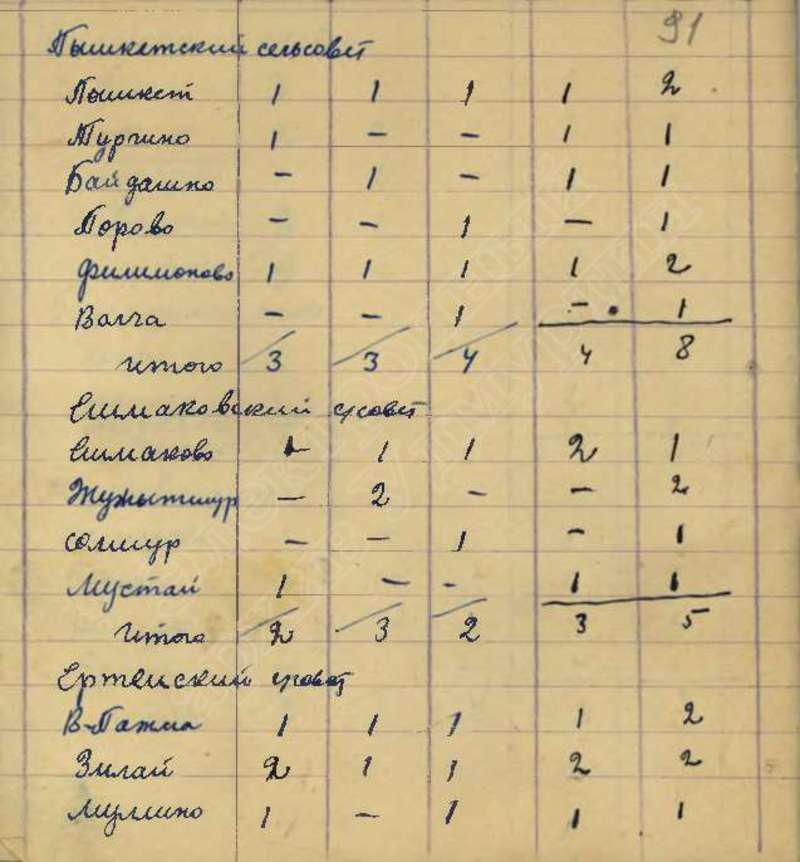 91
Пышкетский сельсовет
Пышкет 1 1 1 1 2
Тургино 1 - - 1 1
Байдашно - 1 - 1 1
Порово - - 1 - 1
Филимоново 1 1 1 1 2
Волга - - 1 - 1
Итого 3 3 4 4 8
Ешмаковский с/совет
Ешмаково 1 1 1 2 1
Жужытшур - 2 - - 2
Солшур - - 1 - 1
Мустай 1 - - 1 1
Итого 2 3 2 3 5
Ертемский с/совет
В-Пажма 1 1 1 1 2
Зилай 2 1 1 2 2
Муллино 1 - 1 1 1